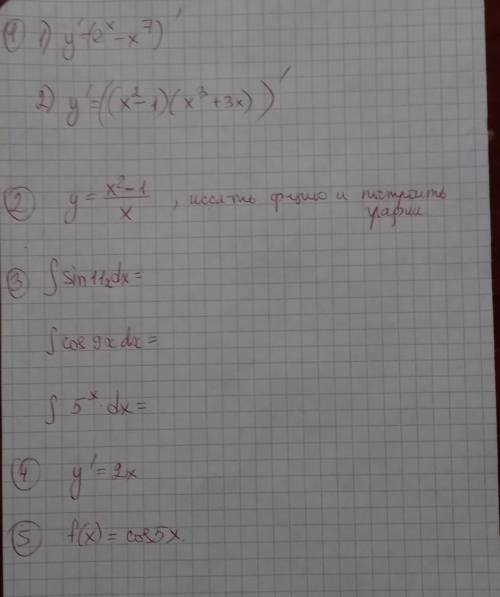 ① 1) y'=(e^x - x^7)'
2) y'=((x^2-1)(x^3+3x))'
② y = (x^2-1)/x , иссл-ть ф-цию и построить
график
③ ∫ sin 11x dx =
∫ cos 9x dx =
∫ 5^x dx =
④ y' = 2x
⑤ f(x) = cos 5x